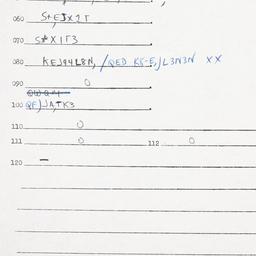 060 S+EJX2T
070 S*X1T3
080 KEJ94L8N, /QED K5-E,JL3N3N XX
090 0
100 QF)JA,TK3
110 0
111 0 112 0
120 —